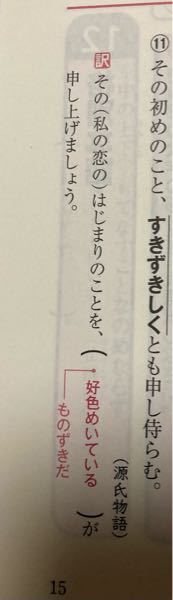 ⑪その初めのこと、すきずきしくとも申し侍らむ。
(源氏物語)
訳 その(私の恋の)はじまりのことを、(好色めいている)が
ものずきだ
申し上げましょう。
15